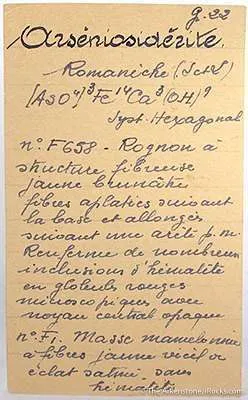 g. 22
Arséniosidérite.
Romanèche (S. et L)
[AsO⁴]³Fe¹⁴Ca³(OH)⁹
Syst. Hexagonal
n° F658 - Rognon à
structure fibreuse
jaune brunâtre
fibres aplaties suivant
la base et allongées
suivant une arête p. m.
Renferme de nombreuses
inclusions d'hématite
en globules rouges
microscopiques avec
noyau central opaque
n° F1. Masse mamelonnée
à fibres jaune vieil or
éclat satiné. sans
hématite
The Arkenstone/iRocks.com